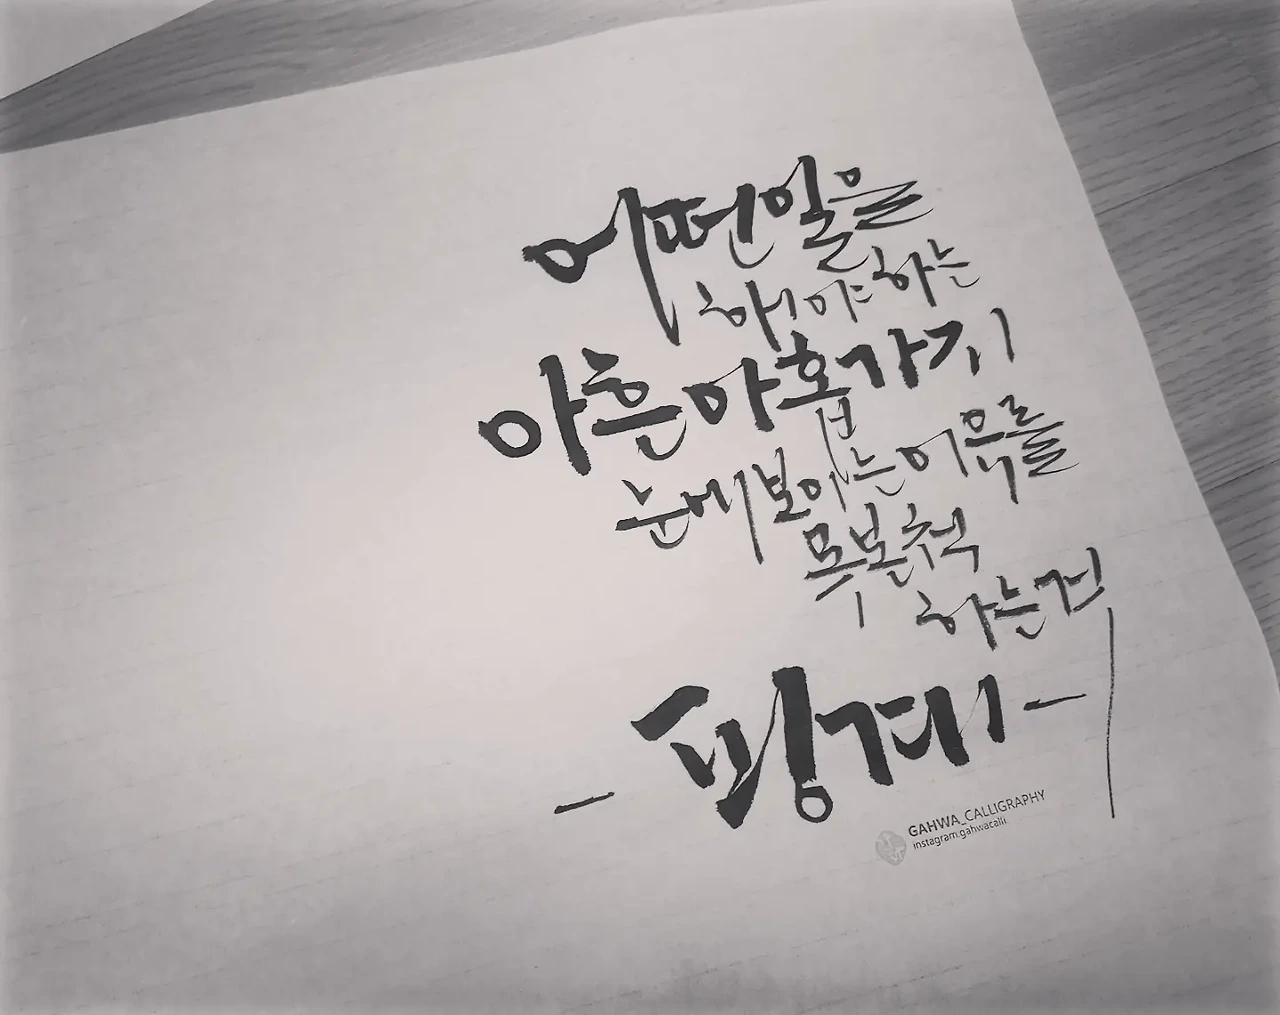 어떤일을
해야하는
아흔아홉가지
눈에보이는이유를
못본척
하는건
- 핑계 -
GAHWA_CALLIGRAPHY
instagram.gahwacalli